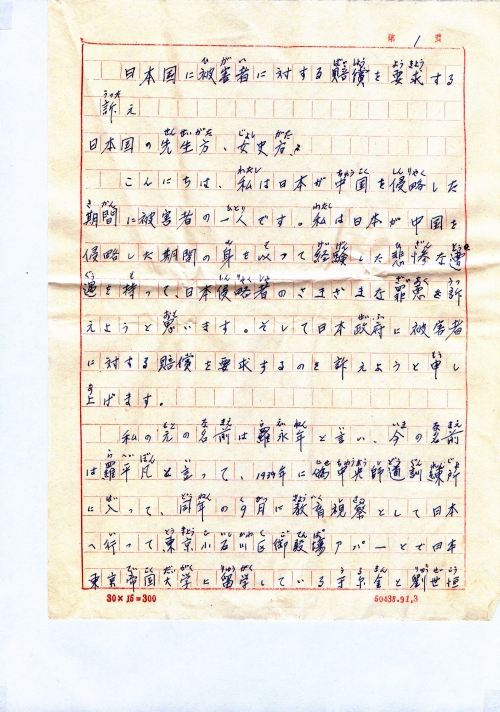 第 1 页
日本国に被害者に対する賠償を要求する
訴え
日本国の先生方、女史方:
こんにちは、私は日本が中国を侵略した
期間に被害者の一人です。私は日本が中国を
侵略した期間の身を以って経験した悲惨な遭
遇を持って、日本侵略者のさまざまな罪悪を訴
えようと思います。そして日本政府に被害者
に対する賠償を要求するのを訴えようと申し
上げます。
私の元の名前は羅永年と言い、今の名前
は羅平凡と言って、1939年に偽中央師道訓練所
に入って、同年の9月に教育視察として日本
へ行って東京小石川区御殿場アパートで日本
東京帝国大学に留学している于京金と劉世恒
30×15=300
50438.91.3